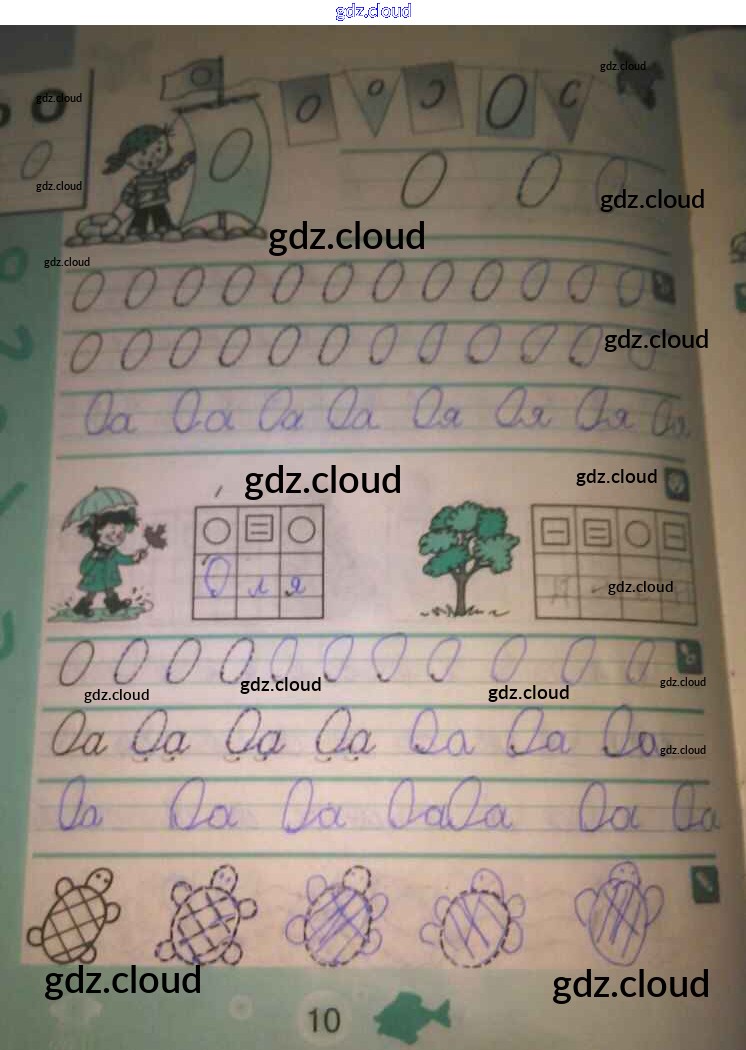 gdz.cloud
O o Э O С
gdz.cloud
gdz.cloud
O
O O O
gdz.cloud
gdz.cloud
gdz.cloud
gdz.cloud
O O O O O O O O O O O O
O O O O O O O O O O O O
gdz.cloud
Оа Оа Оа Оа Оя Оя Оя Оя
gdz.cloud
gdz.cloud
О л я
gdz.cloud
O O O O O O O O O O O
gdz.cloud
gdz.cloud
gdz.cloud
gdz.cloud
Оа Оа Оа Оа Оа Оа Оа
gdz.cloud
Оа Оа Оа Оа Оа Оа Оа
gdz.cloud
gdz.cloud
10